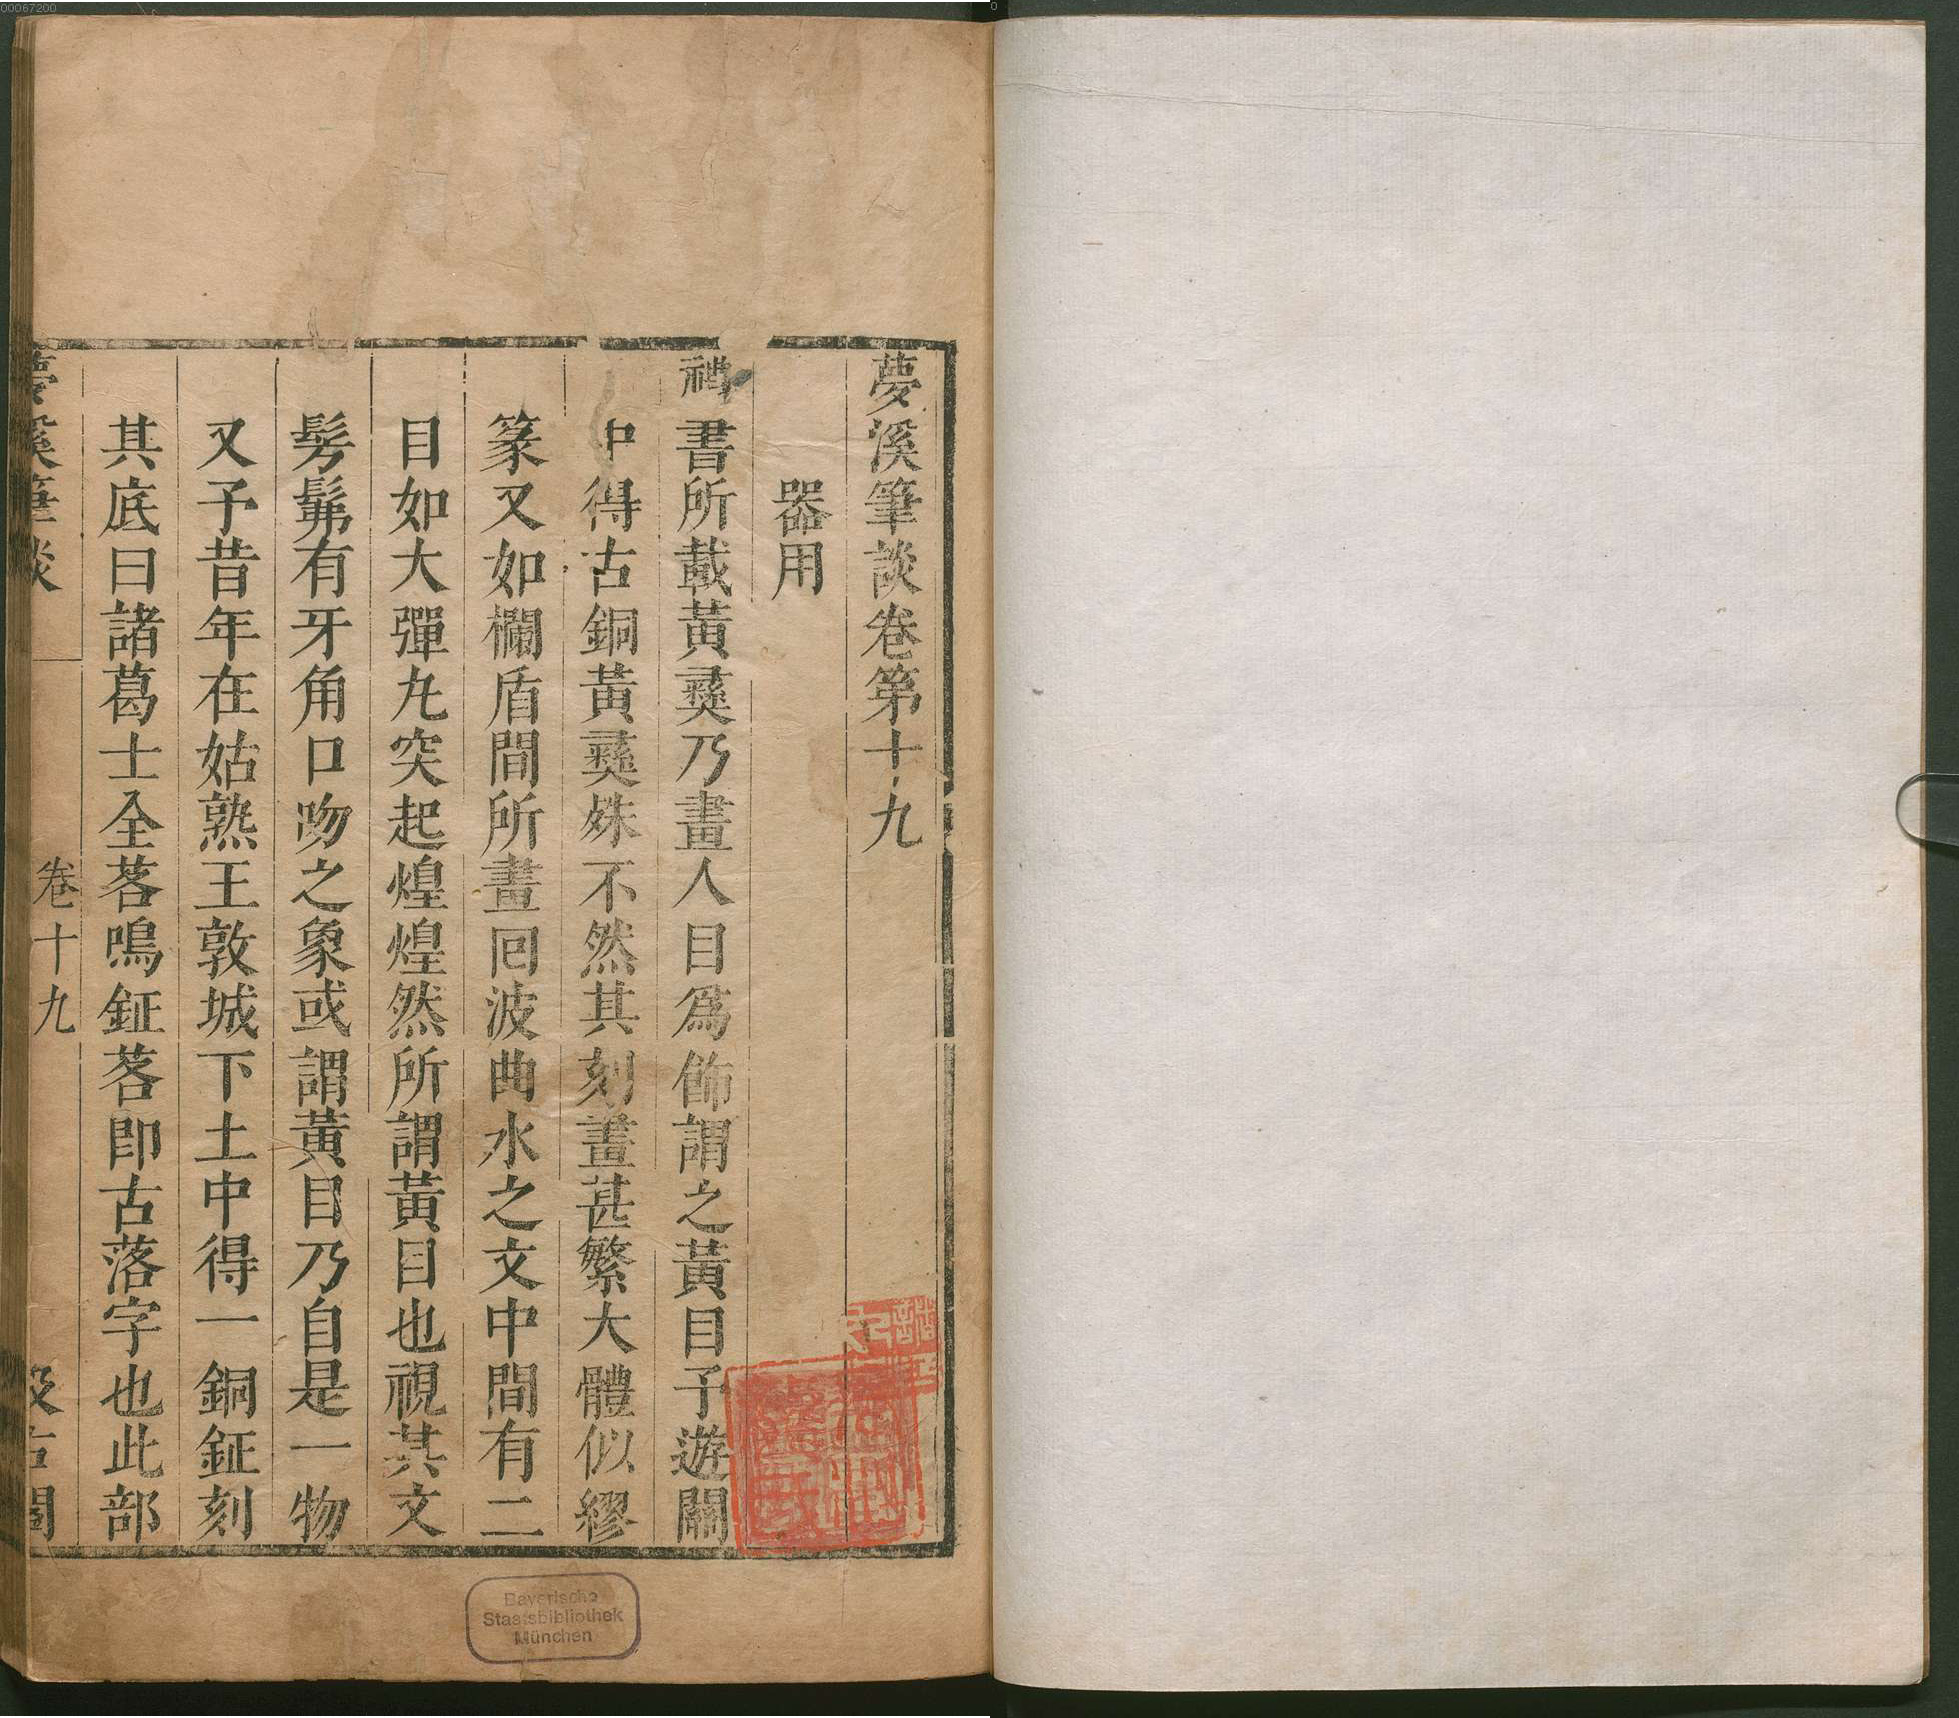 夢溪筆談卷第十九
器用
禮書所載黃彛乃畫人目爲飾謂之黃目予遊關
中得古銅黃彛殊不然其刻畫甚繁大體似繆
篆又如欄盾間所畫回波曲水之文中間有二
目如大彈丸突起煌煌然所謂黃目也視其文
髣髴有牙角口吻之象或謂黃目乃自是一物
又予昔年在姑熟王敦城下土中得一銅鉦刻
其底曰諸葛士全茖鳴鉦茖即古落字也此部
夢溪筆談
卷十九
汲古閣
Bayerische
Staatsbibliothek
München
00067200